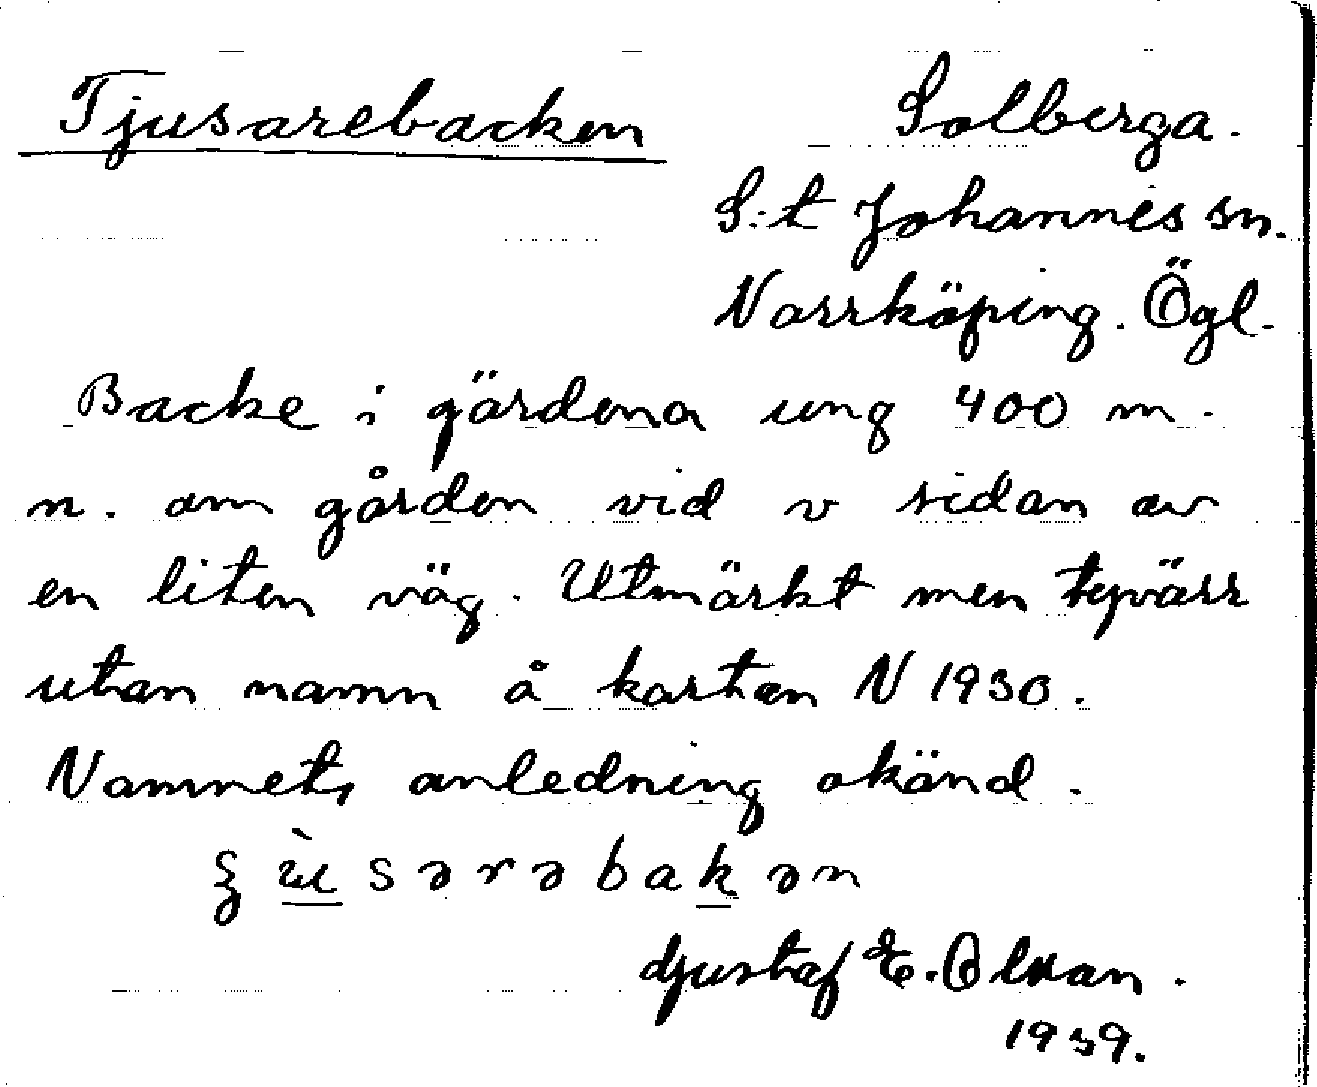 Tjusarebacken Solberga.
S:t Johannes sn.
Norrköping. Ögl.
Backe i gärdena ung 400 m.
n. om gården vid v sidan av
en liten väg. Utmärkt men tyvärr
utan namn å kartan N 1930.
Namnets anledning okänd.
ʒ ùu s ə r ə b a k ə n
Gustaf E. Olson.
1939.